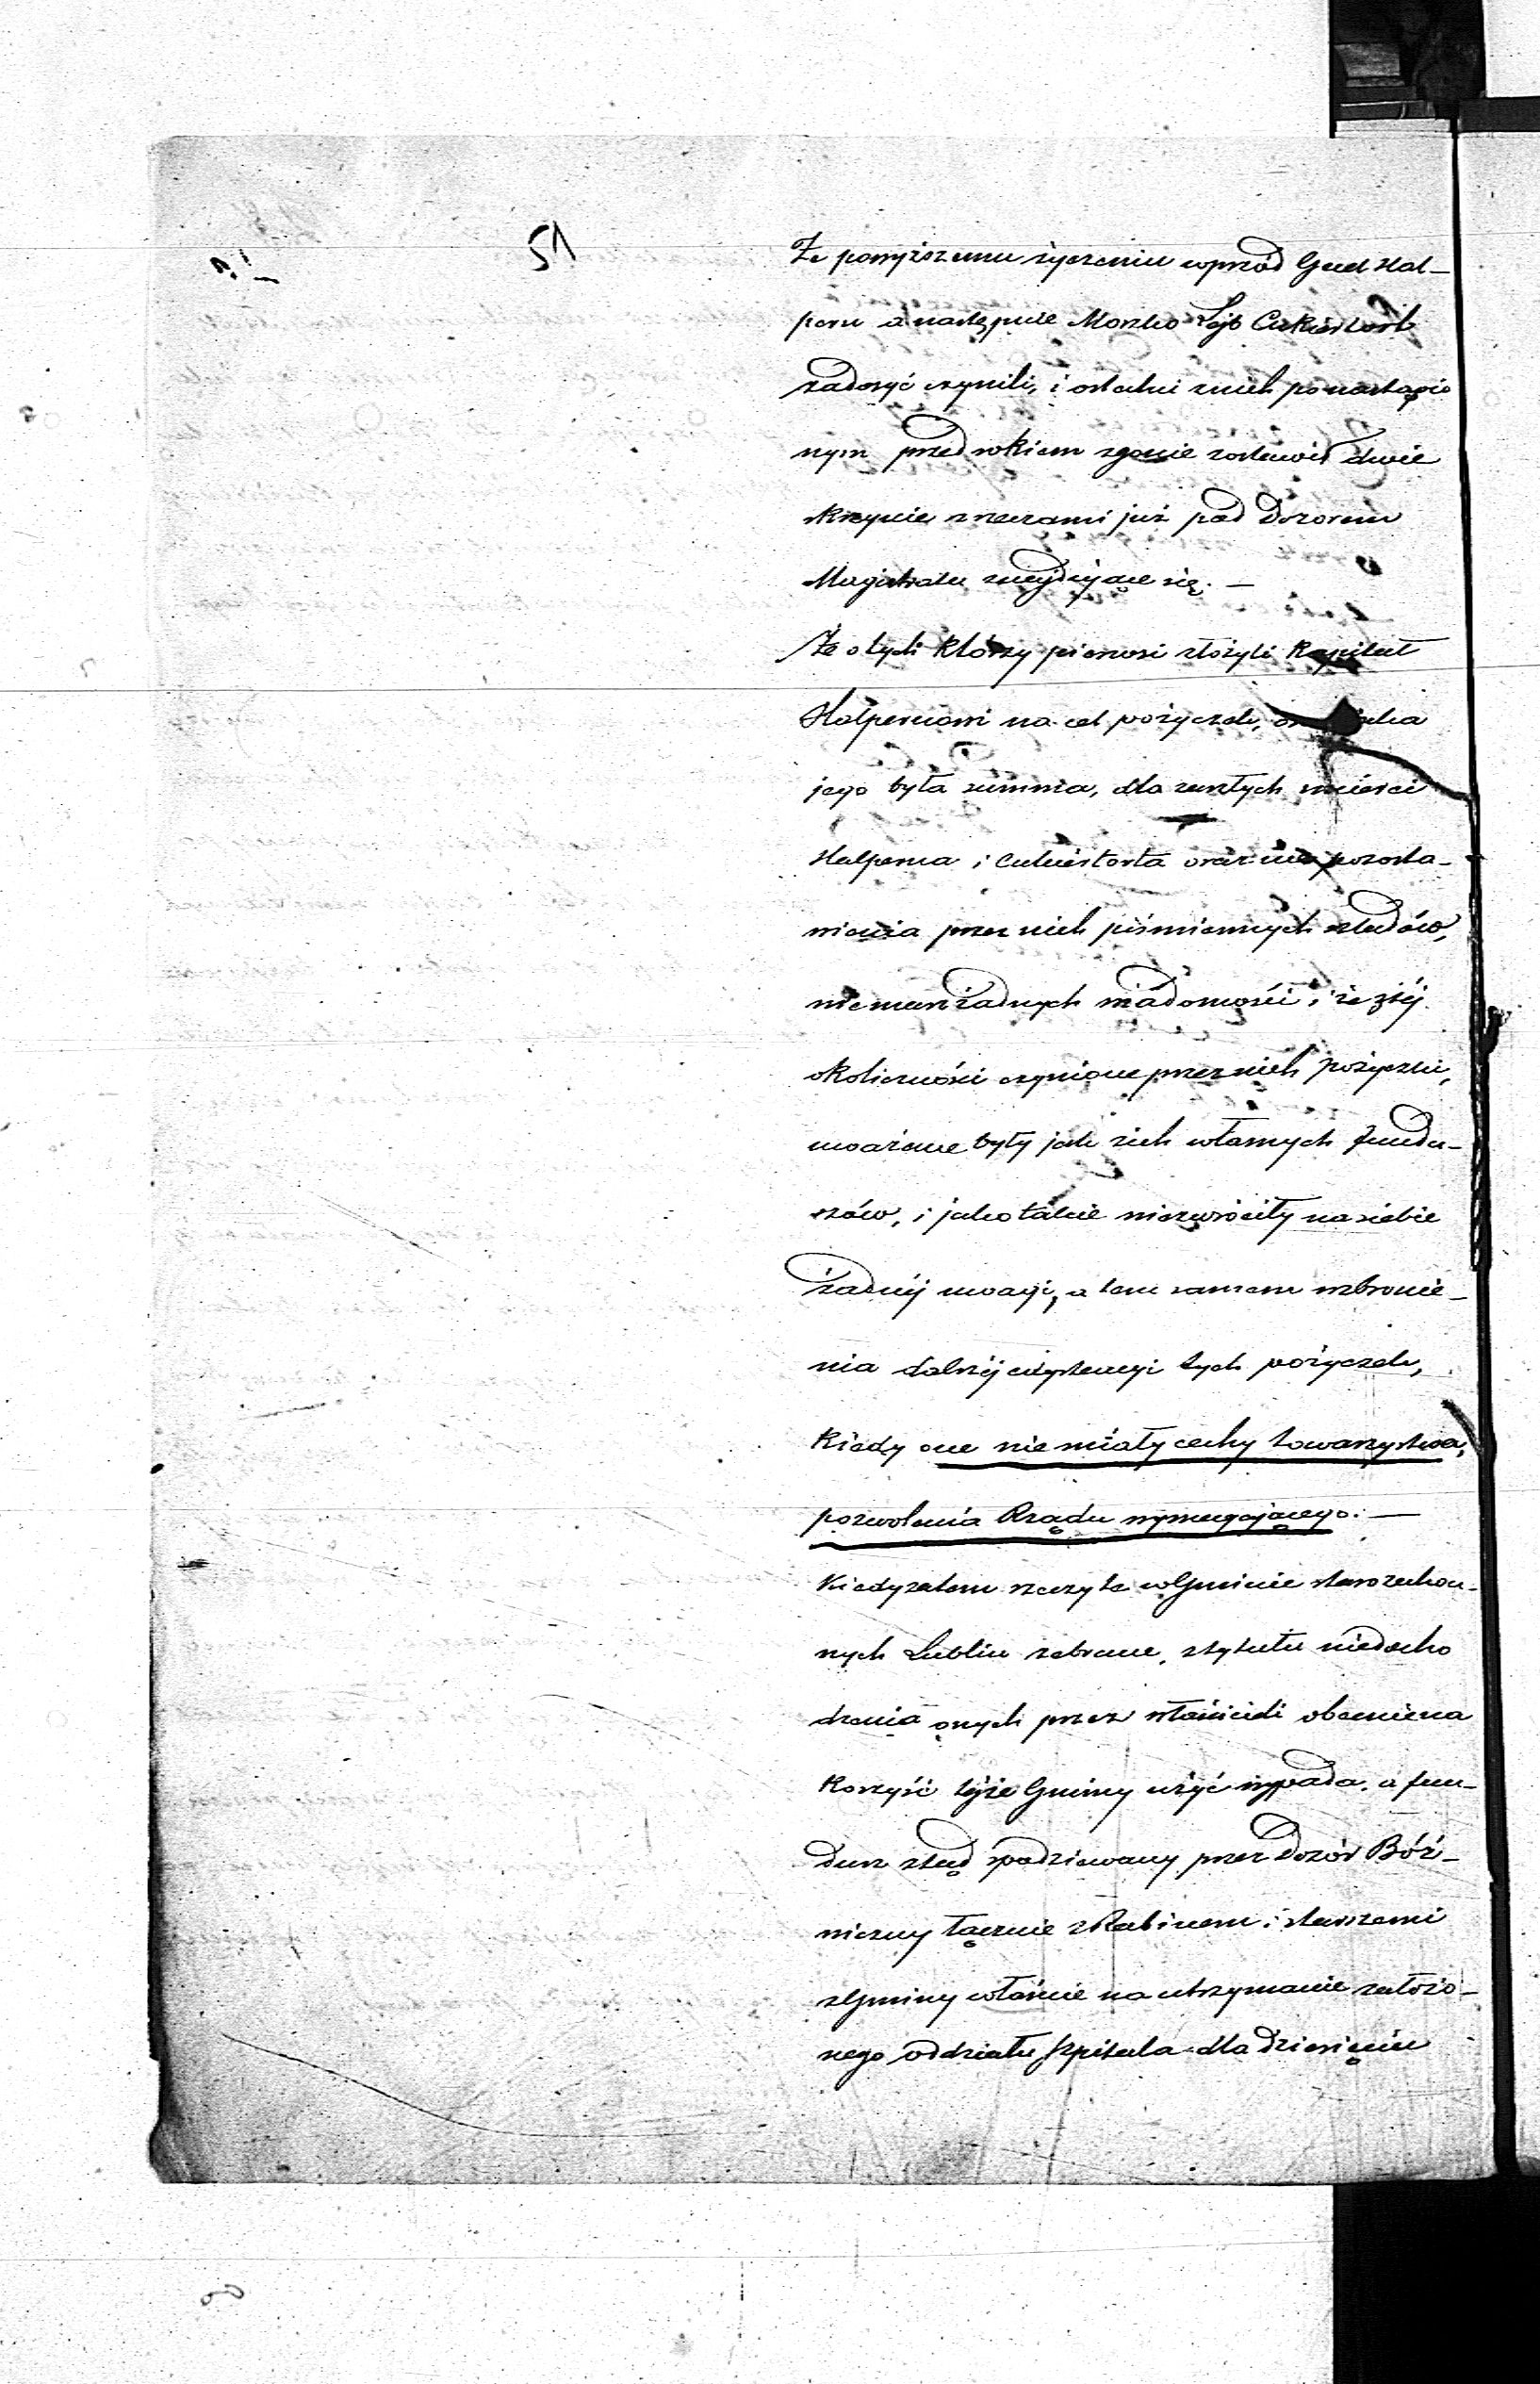 51
Że powyższemu życzeniu wprzód Gecel Hal-
pern a następnie Moszko Lejb Cukiertort
zadosyć czynili, i ostatni znich ponastąpio
nym przed rokiem zgonie zostawił dwie
skrzynie zrzeczami już pod Dozorem
Magistratu znajdujące się. —
Że o tych którzy pierwsi złożyli Kapitał
Halpernowi na cel pożyczek, jaka
jego była summa, dla zaszłych śmierci
Halperna i Cukiertorta oraz nie pozosta-
wienia przez nich piśmiennych śladów,
niemasz żadnych wiadomości, i że ztéj
okoliczności czynione przeznich pożyczki,
uważane były jak zich własnych fundu-
szów, i jako takie niezwróciły nasiebie
żadnéj uwagi, a tem samem wzbronie-
nia dalszéj exystencyi tych pożyczek,
Kiedy one nie miały cechy towarzystwa,
pozwolenia Rządu wymagającego. —
Kiedy zatem rzeczy te wGminie starozakon-
nych Lublin zebrane, ztytułu niedocho
dzenia onych przez właścicieli obecnie na
Korzyść téjże Gminy użyć wypada, a fun-
dusz ztąd spodziewany przez Dozór Bóż-
niczny łącznie zRabinem i starszemi
zGminy właśnie na utrzymanie założo-
nego oddziału szpitala dla dziesięciu